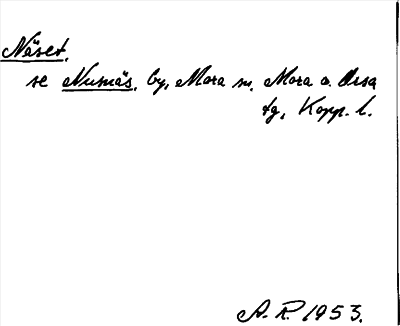 Näset,
se Numäs, by, Mora sn. Mora o. Orsa
tg, Kopp. l.
A. R. 1953.